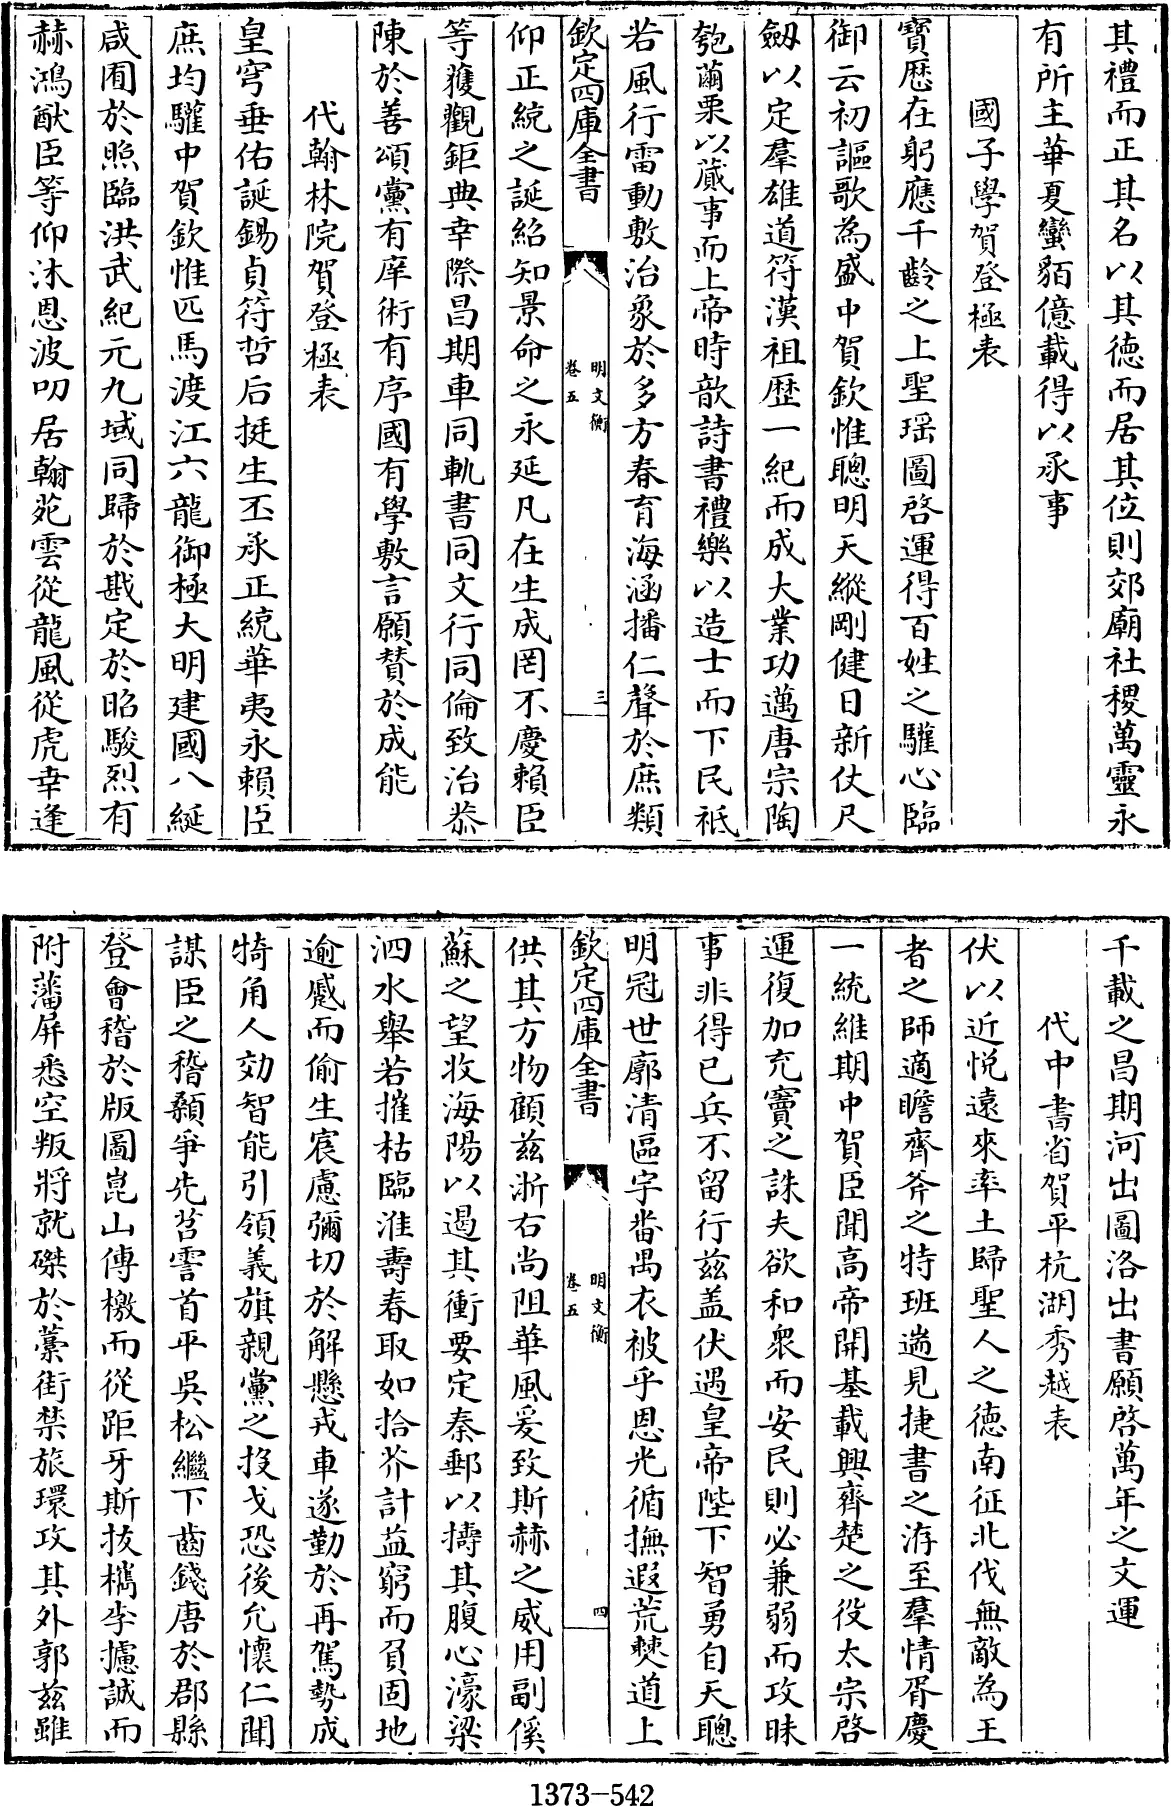 其禮而正其名以其徳而居其位則郊廟社稷萬靈永
有所主華夏蠻貊億載得以承事
國子學賀登極表
寳歴在躬應千齡之上聖瑶圖啓運得百姓之驩心臨
御云初謳歌為盛中賀欽惟聰明天縱剛健日新仗尺
劔以定羣雄道符漢祖歴一紀而成大業功邁唐宗陶
匏繭栗以蕆事而上帝時歆詩書禮樂以造士而下民祗
若風行雷動敷治象於多方春育海涵播仁聲於庶類
欽定四庫全書
明文衡
卷五
三
仰正統之誕紹知景命之永延凡在生成罔不慶賴臣
等獲觀鉅典幸際昌期車同軌書同文行同倫致治恭
陳於善頌黨有庠術有序國有學敷言願賛於成能
代翰林院賀登極表
皇穹垂佑誕錫貞符哲后挺生丕承正統華夷永賴臣
庶均驩中賀欽惟匹馬渡江六龍御極大明建國八綖
咸囿於照臨洪武紀元九域同歸於戡定於昭駿烈有
赫鴻猷臣等仰沐恩波叨居翰苑雲從龍風從虎幸逢
千載之昌期河出圖洛出書願啓萬年之文運
代中書省賀平杭湖秀越表
伏以近悦遠來率土歸聖人之徳南征北伐無敵為王
者之師適瞻齊斧之特班遄見捷書之洊至羣情胥慶
一統維期中賀臣聞高帝開基載興齊楚之役太宗啓
運復加充竇之誅夫欲和衆而安民則必兼弱而攻昧
事非得已兵不留行兹盖伏遇皇帝陛下智勇自天聰
明冠世廓清區宇畨禺衣被乎恩光循撫遐荒僰道上
欽定四庫全書
明文衡
卷五
四
供其方物顧兹浙右尚阻華風爰致斯赫之威用副徯
蘇之望攻海陽以遏其衝要定秦郵以擣其腹心濠梁
泗水舉若摧枯臨淮壽春取如拾芥計益窮而負固地
逾蹙而偷生宸慮彌切於解懸戎車遂勤於再駕勢成
犄角人効智能引領義旗親黨之投戈恐後允懷仁聞
謀臣之稽顙爭先苕霅首平吳松繼下齒錢唐於郡縣
登會稽於版圖崑山傳檄而從距牙斯拔檇李攄誠而
附藩屏悉空叛將就磔於藁街禁旅環攻其外郭兹雖
1373-542